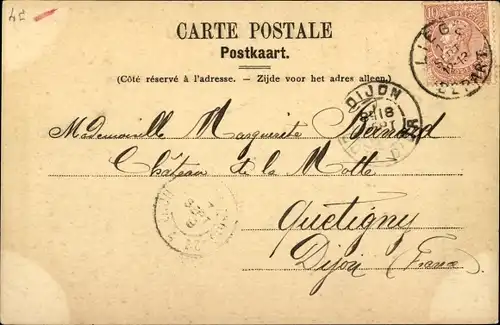 45
CARTE POSTALE
Postkaart.
(Côté réservé à l'adresse. – Zijde voor het adres alleen.)
10
LIÉGE
DÉPART
DIJON
18
Mademoiselle Marguerite
Château de la Motte
Quetigny
Dijon (France)